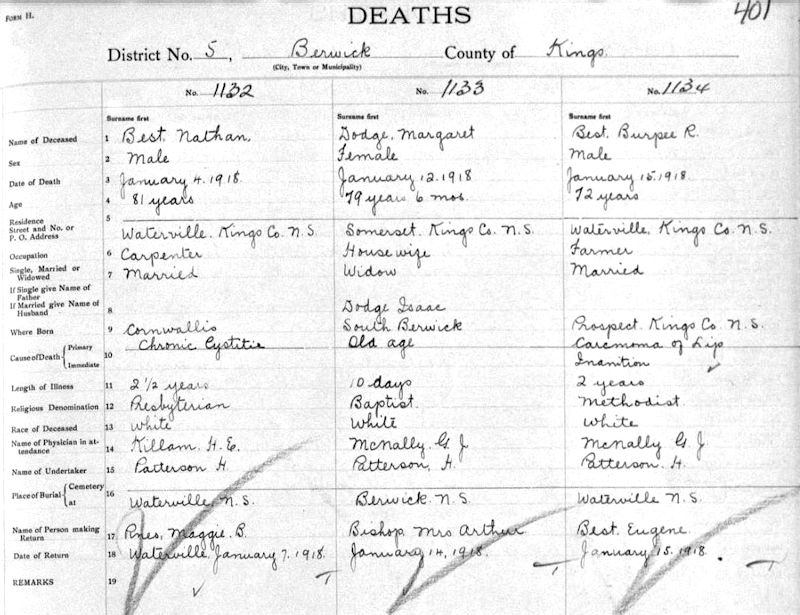 FORM H.
DEATHS
401
District No. 5, Berwick County of Kings.
(City, Town or Municipality)
No. 1132 No. 1133 No. 1134
Surname first Surname first Surname first
Name of Deceased 1 Best, Nathan, Dodge, Margaret Best, Burpee R.
Sex 2 Male Female Male
Date of Death 3 January 4. 1918. January 12. 1918 January 15. 1918.
Age 4 81 years 79 years 6 mos. 72 years
Residence 5
Street and No. or
P. O. Address Waterville. Kings Co. N.S. Somerset. Kings Co. N.S. Waterville, Kings Co. N.S.
Occupation 6 Carpenter Housewife Farmer
Single, Married or
Widowed 7 Married Widow Married
If Single give Name of
Father
If Married give Name of
Husband 8 Dodge Isaac
Where Born 9 Cornwallis South Berwick Prospect. Kings Co. N.S.
Cause of Death { Primary 10 Chronic Cystitie Old age Carcmoma of Lip
Immediate Inanition
Length of Illness 11 2 1/2 years 10 days 2 years
Religious Denomination 12 Presbyterian Baptist. Methodist.
Race of Deceased 13 White White White
Name of Physician in at-
tendance 14 Killam. H. E. McNally. G. J McNally G. J.
Name of Undertaker 15 Patterson H. Patterson, H. Patterson. H.
Place of Burial { Cemetery 16
at Waterville, N.S. Berwick. N.S. Waterville N.S.
Name of Person making
Return 17 Maggie B. Bishop, Mrs Arthur Best. Eugene.
Date of Return 18 Waterville, January 7. 1918. January 14, 1918. January 15. 1918.
REMARKS 19